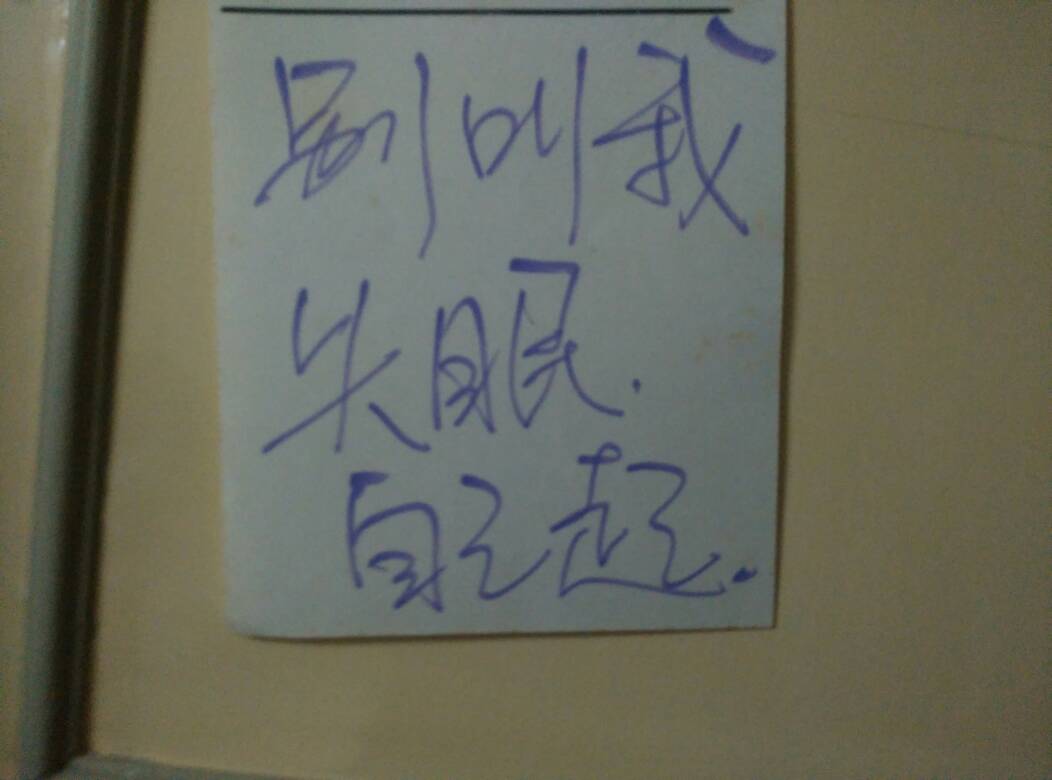 别叫我
失眠.
自己起.